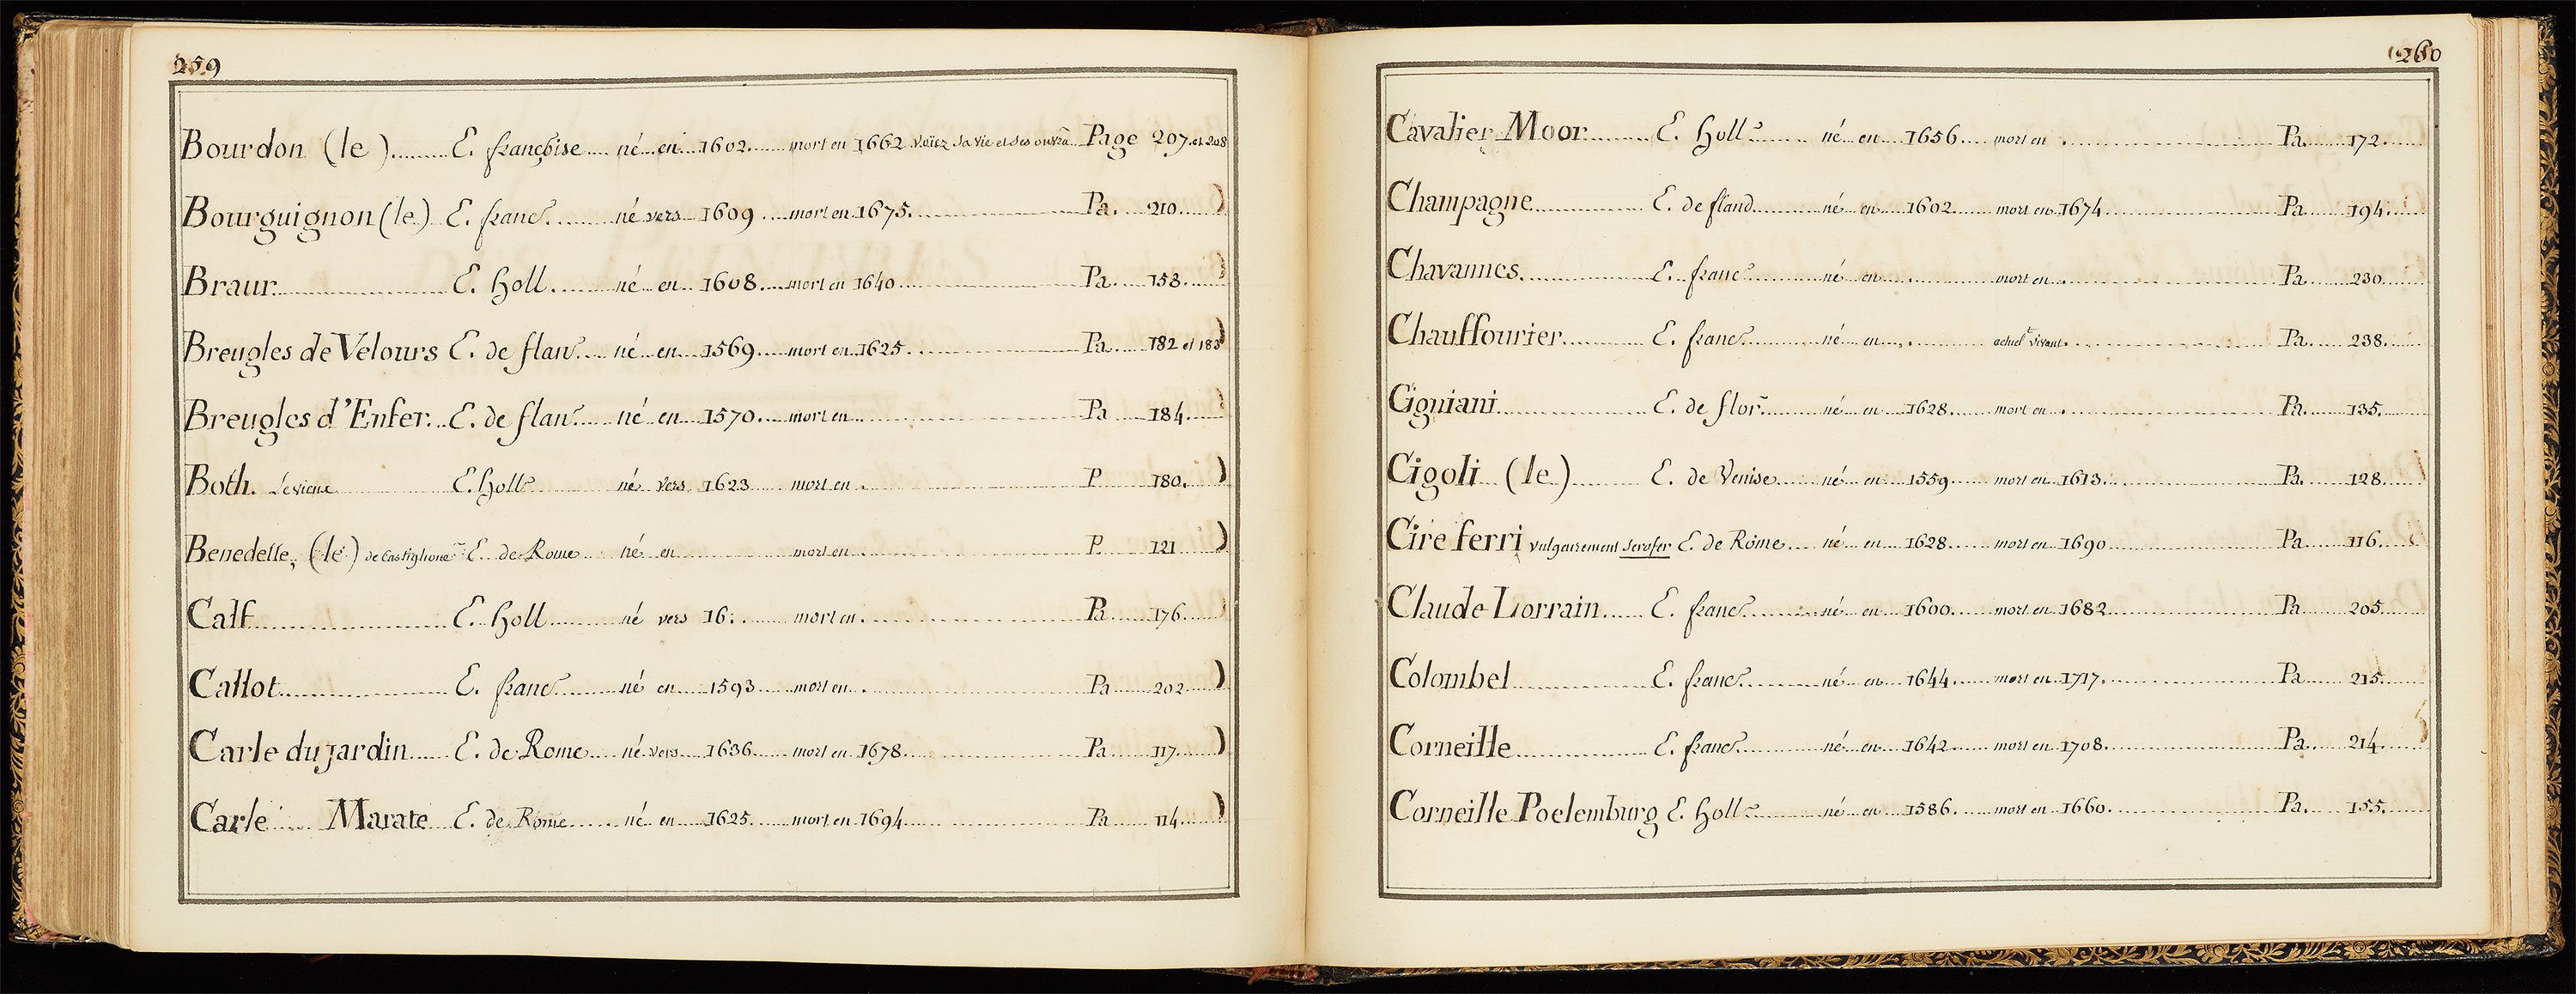 259
Bourdon (le) E. françoise né en 1602. mort en 1662 voïez sa vie et ses ouvra Page 207. et 208
Bourguignon (le) E. franc. né vers 1609 mort en 1675. Pa. 210
Braur E. holl. né en 1608. mort en 1640 Pa. 158.
Breugles de Velours E. de flan né en 1569. mort en 1625 Pa. 182 et 183
Breugles d'Enfer. E. de flan né en 1570. mort en Pa 184.
Both. Levieux E. holl né vers 1623 mort en P 180.
Benedette, (le) de Castiglione E. de Rome né en mort en P 121
Calf E. holl né vers 16. mort en Pa 176.
Callot E. franc né en 1593 mort en Pa 202
Carle du jardin E. de Rome né vers 1636 mort en 1678 Pa 117.
Carle Marate E. de Rome né en 1625. mort en 1694 Pa 114.
260
Cavalier Moor E. holl né en 1656. mort en Pa. 172.
Champagne E. de fland né en 1602. mort en 1674 Pa 194.
Chavannes. E. franc né en mort en Pa 230.
Chauffourier E. franc né en actuel.t vivant. Pa. 238.
Cigniani E. de flor né en 1628. mort en Pa. 135.
Cigoli (le) E. de Venise né en 1559 mort en 1613. Pa. 128.
Cire ferri vulgairement Serofer E. de Rome né en 1628 mort en 1690 Pa 116.
Claude Lorrain E. franc né en 1600. mort en 1682 Pa 205.
Colombel E. franc né en 1644. mort en 1717. Pa 215.
Corneille E. franc né en 1642. mort en 1708. Pa. 214.
Corneille Poelemburg E. holl né en 1586. mort en 1660. Pa. 155.